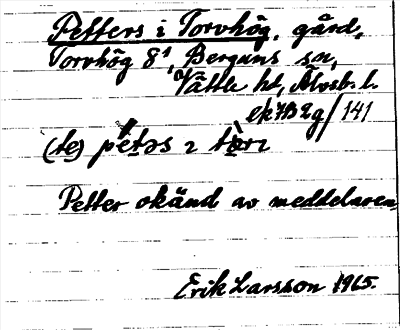 Petters i Torvhög, gård,
Torvhög 8¹, Bergums sn,
Vättle hd, Älvsb. l.
ek 7B 2g/141
(te) pétəs ɩ tərɩ
Petter okänd av meddelaren
Erik Larsson 1965.